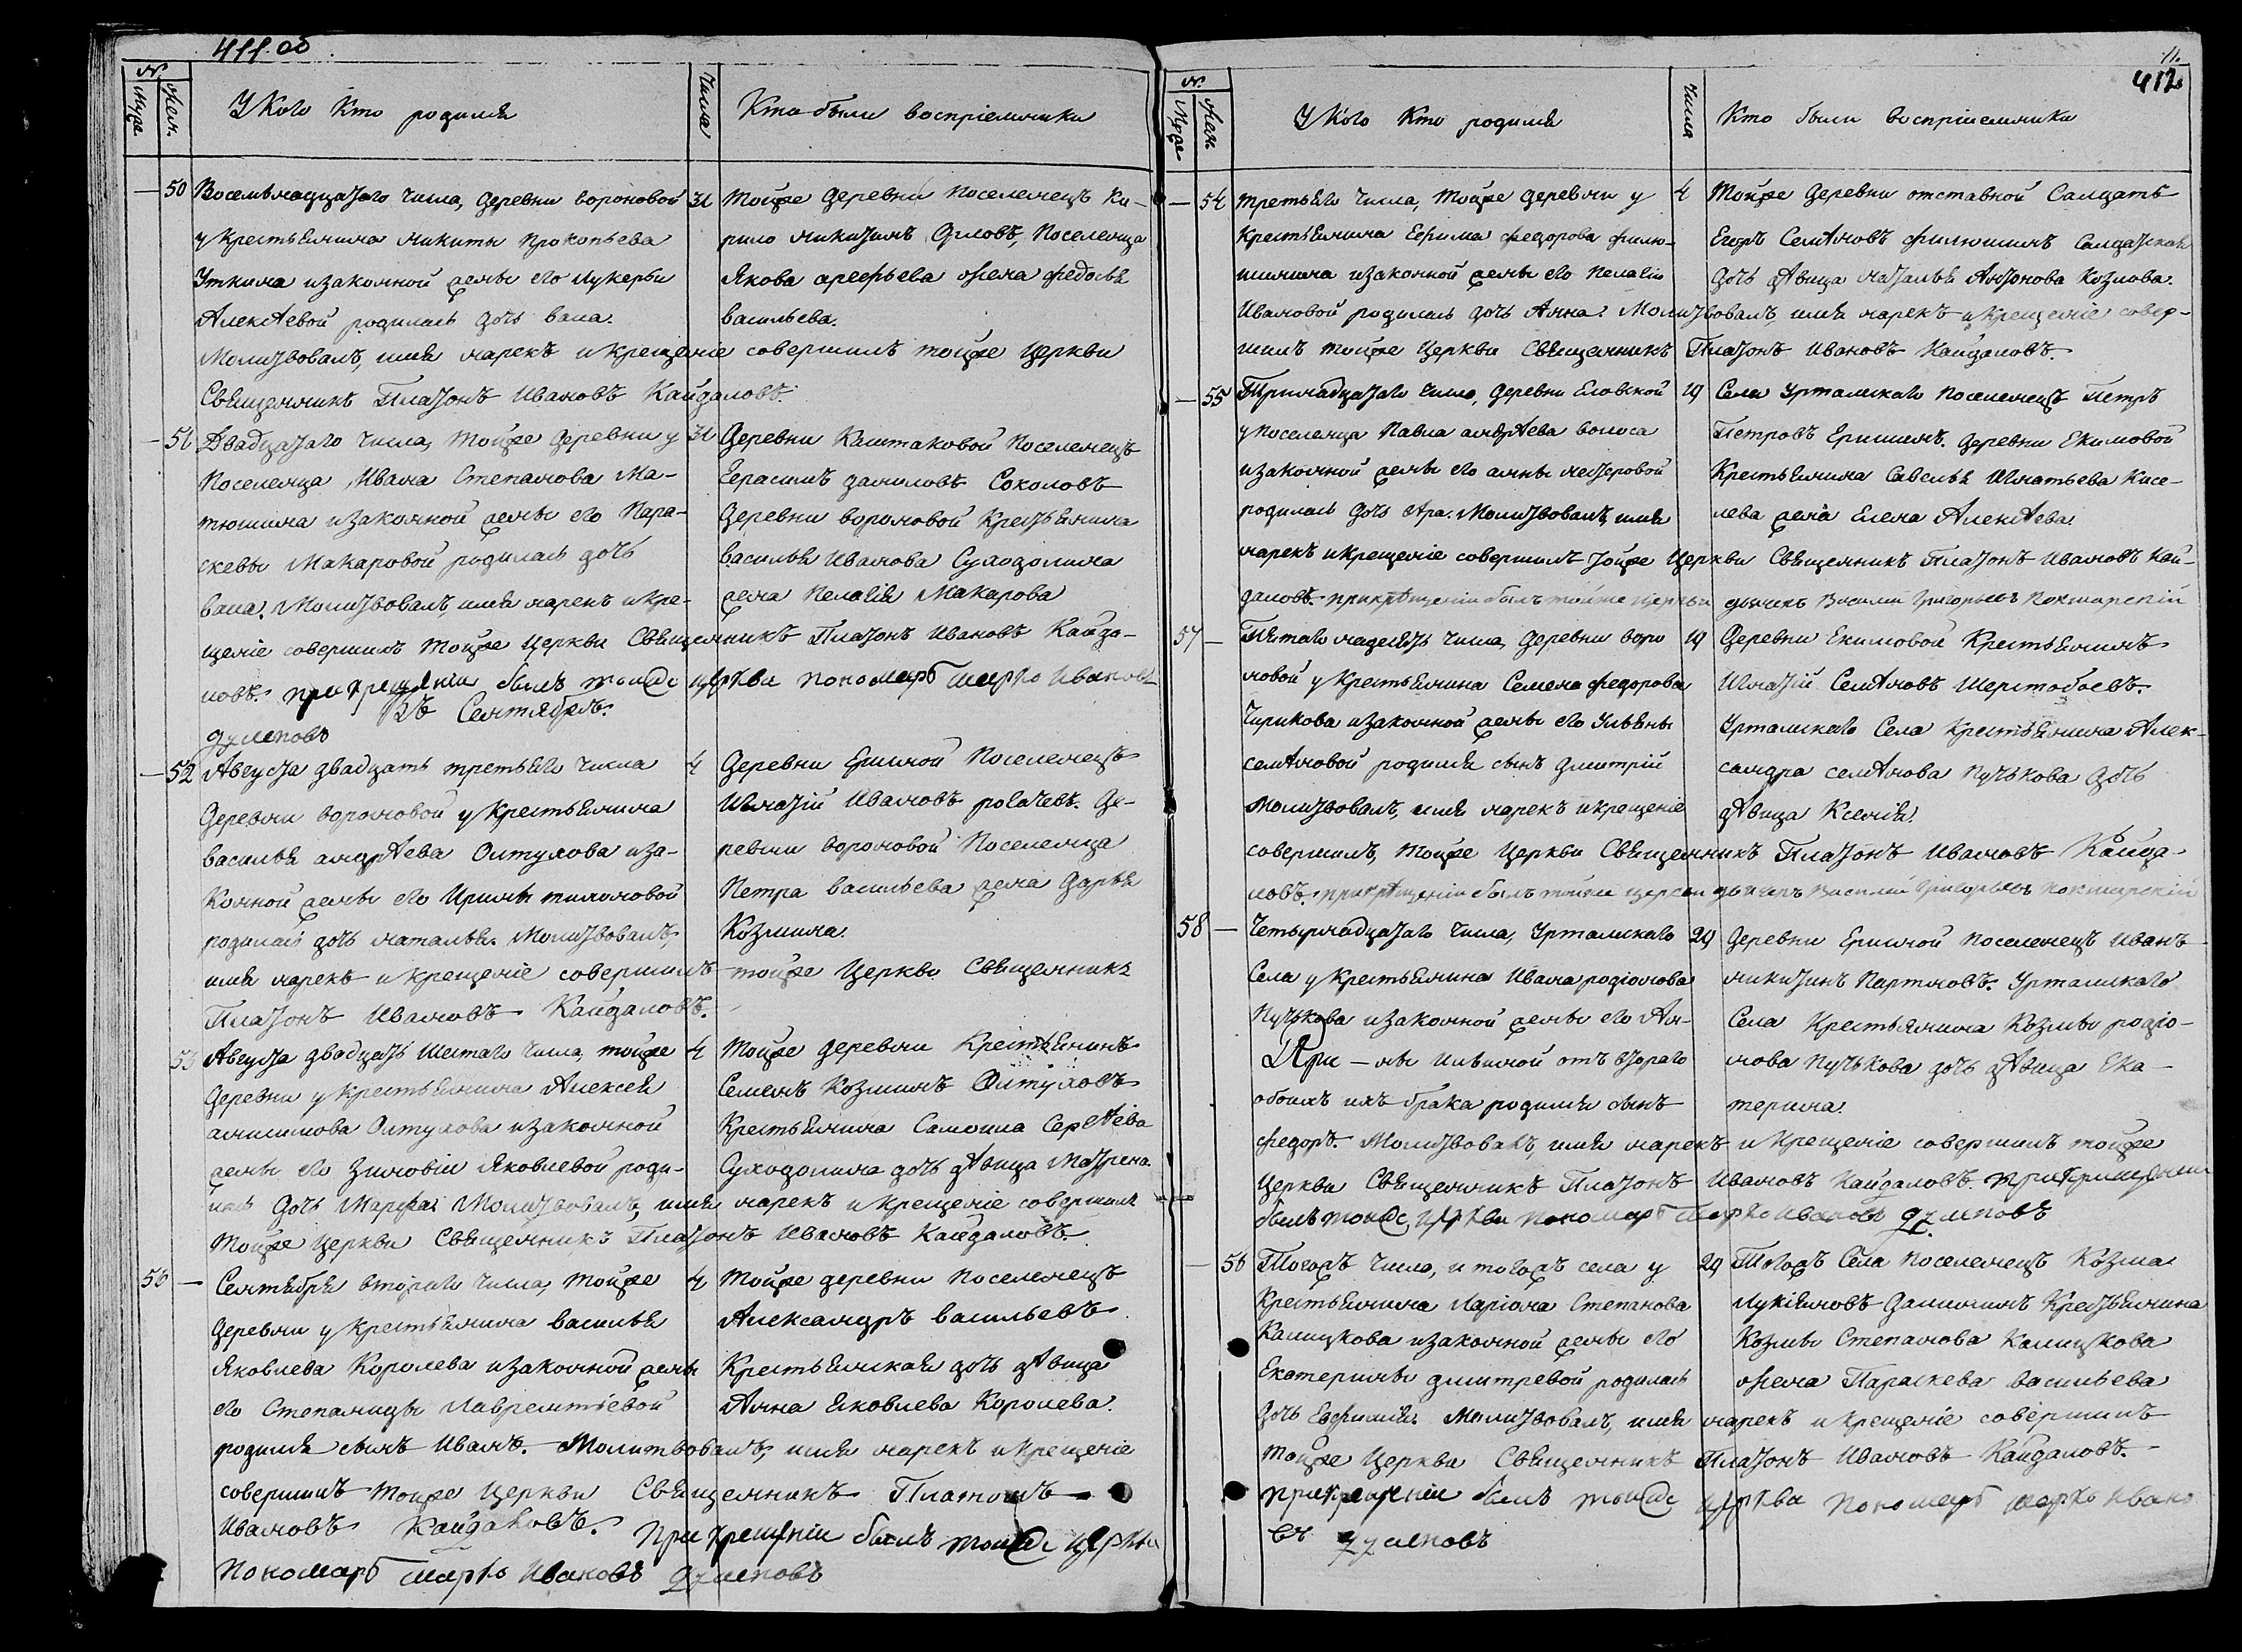 411 об.
№.
Муде. Жен.
У Кого Кто родился
Числа
Кто были восприемники
50 Восемьнадцатого Числа, деревни вороновой
у Крестьянина никиты прокопьева
Уткина и законной жены его Лукерьи
Алексѣевой родилась дочь васа.
31
Тойже деревни Поселенец Ки-
рило никитинъ Орловъ, Поселенца
Якова арефьева жена федосья
васильева.
Молитвовалъ, имя нарекъ и крещеніе совершилъ тойже Церкви
Священникъ Платонъ Ивановъ Кайдаловъ.
51 Двадцатаго Числа, тойже деревни у
Поселенца Ивана Степанова Ма-
тюшина и законной жены его Пара-
скевы Макаровой родилась дочь
васа. Молитвовалъ, имя нарекъ и кре-
31
Деревни Каштаковой Поселенецъ
Герасимъ даниловъ Соколовъ
деревни вороновой Крестьянина
василья Иванова Суходолина
жена Пелагія Макарова
щеніе совершилъ тойже Церкви Священникъ Платонъ Ивановъ Кайда-
ловъ. при крещеніи былъ тойже церкви пономарь марко Ивановъ
Въ Сентябрѣ.
52 Августа двадцать третьяго числа
деревни вороновой у крестьянина
василья андрѣева Олтухова и за-
конной жены его Ирины тихоновой
родилась дочь наталья. Молитвовалъ,
4
Деревни Ершной Поселенецъ
Игнатій Ивановъ рогачевъ. де-
ревни вороновой Поселенца
Петра васильева жена дарья
Козмина.
имя нарекъ и крещеніе совершилъ тойже Церкви Священникъ
Платонъ Ивановъ Кайдаловъ.
53 Августа двадцать шестаго числа, тойже
деревни у крестьянина Алексея
анисимова Олтухова и законной
жены его Зиновіи Яковлевой роди-
4
Тойже деревни Крестьянинъ
Семенъ Козминъ Олтуховъ
Крестьянина Самоила Сергѣева
Суходолина дочь дѣвица Матрена.
лась дочь Марфа. Молитвовалъ, имя нарекъ и крещеніе совершилъ
тойже Церкви Священникъ Платонъ Ивановъ Кайдаловъ.
56 Сентября втораго числа, тойже
деревни у крестьянина василья
Яковлева Королева и законной жены
его Степаниды Лаврентьевой
4
Тойже деревни поселенецъ
Александръ васильевъ
Крестьянская дочь дѣвица
Анна Яковлева Королева.
родился сынъ Иванъ. Молитвовалъ, имя нарекъ и крещеніе
совершилъ тойже Церкви Священникъ Платонъ
Ивановъ Кайдаловъ. При крещеніи былъ тойже церкви
Пономарь марко Ивановъ
11.
412
№.
Муде Жен
У Кого Кто родился
Числа
Кто были восприемники
54 третьяго числа, тойже деревни у
крестьянина Ефима федорова филю-
шинина и законной жены его Пелагіи
4
Тойже деревни отставной Салдатъ
Егоръ Семѣновъ филюшинъ Салдатская
дочь дѣвица наталья Антонова Козлова.
Ивановой родилась дочь Анна. Молитвовалъ, имя нарекъ и крещеніе совер-
шилъ тойже Церкви Священникъ Платонъ Ивановъ Кайдаловъ.
55 Тринадцатаго числа, деревни Еловской
у поселенца Павла андрѣева волоса
и законной жены его анны нестеровой
родилась дочь Ира. Молитвовалъ, имя
19
Села Уртамскаго Поселенецъ Петръ
Петровъ Еришинъ. деревни Екимовой
Крестьянина Савелья Игнатьева Кисе-
лева жена Елена Алексѣева.
нарекъ и крещеніе совершилъ тойже Церкви Священникъ Платонъ Ивановъ Кай-
даловъ. при крѣщеніи былъ тойже церкви дьячекъ Василий Григорьевъ
57 Пятаго надесять числа, деревни воро
новой у крестьянина Семена федорова
Чирикова и законной жены его Ульяны
семѣновой родился сынъ дмитрій
Молитвовалъ, имя нарекъ и крещеніе
19
Деревни Екимовой Крестьянинъ
Игнатій Семѣновъ Шерстобоевъ.
Уртамскаго Села Крестьянина Алек-
сандра семѣнова Пучькова дочь
дѣвица Ксенія.
совершилъ, тойже Церкви Священникъ Платонъ Ивановъ Кайда-
ловъ. при крѣщеніи былъ тойже церкви дьячекъ Василий Григорьевъ
58 Четырнадцатаго числа, Уртамскаго
Села у крестьянина Ивана родіонова
Пучькова и законной жены его Ан-
ны Ильиной отъ втораго
обоихъ ихъ брака родился сынъ
29
деревни Ершной Поселенецъ Иванъ
никитинъ Партновъ. Уртамскаго
Села Крестьянина Козмы родіо-
нова Пучькова дочь дѣвица Ека-
терина.
федоръ. Молитвовалъ, имя нарекъ и крещеніе совершилъ тойже
Церкви Священникъ Платонъ Ивановъ Кайдаловъ. при крещеніи
былъ тойже церкви пономарь марко Ивановъ
56 Тогожъ числа, и тогожъ села у
Крестьянина Ларіона Степанова
Калишкова и законной жены его
Екатерины дмитревой родилась
29
Тогожъ Села поселенецъ Козма
Лукіяновъ Данилинъ Крестьянина
Козмы Степанова Калишкова
жена Параскева васильева
дочь Евфимія. Молитвовалъ, имя нарекъ и крещеніе совершилъ
тойже Церкви Священникъ Платонъ Ивановъ Кайдаловъ.
при крещеніи былъ тойже церкви пономарь марко Ивано
въ